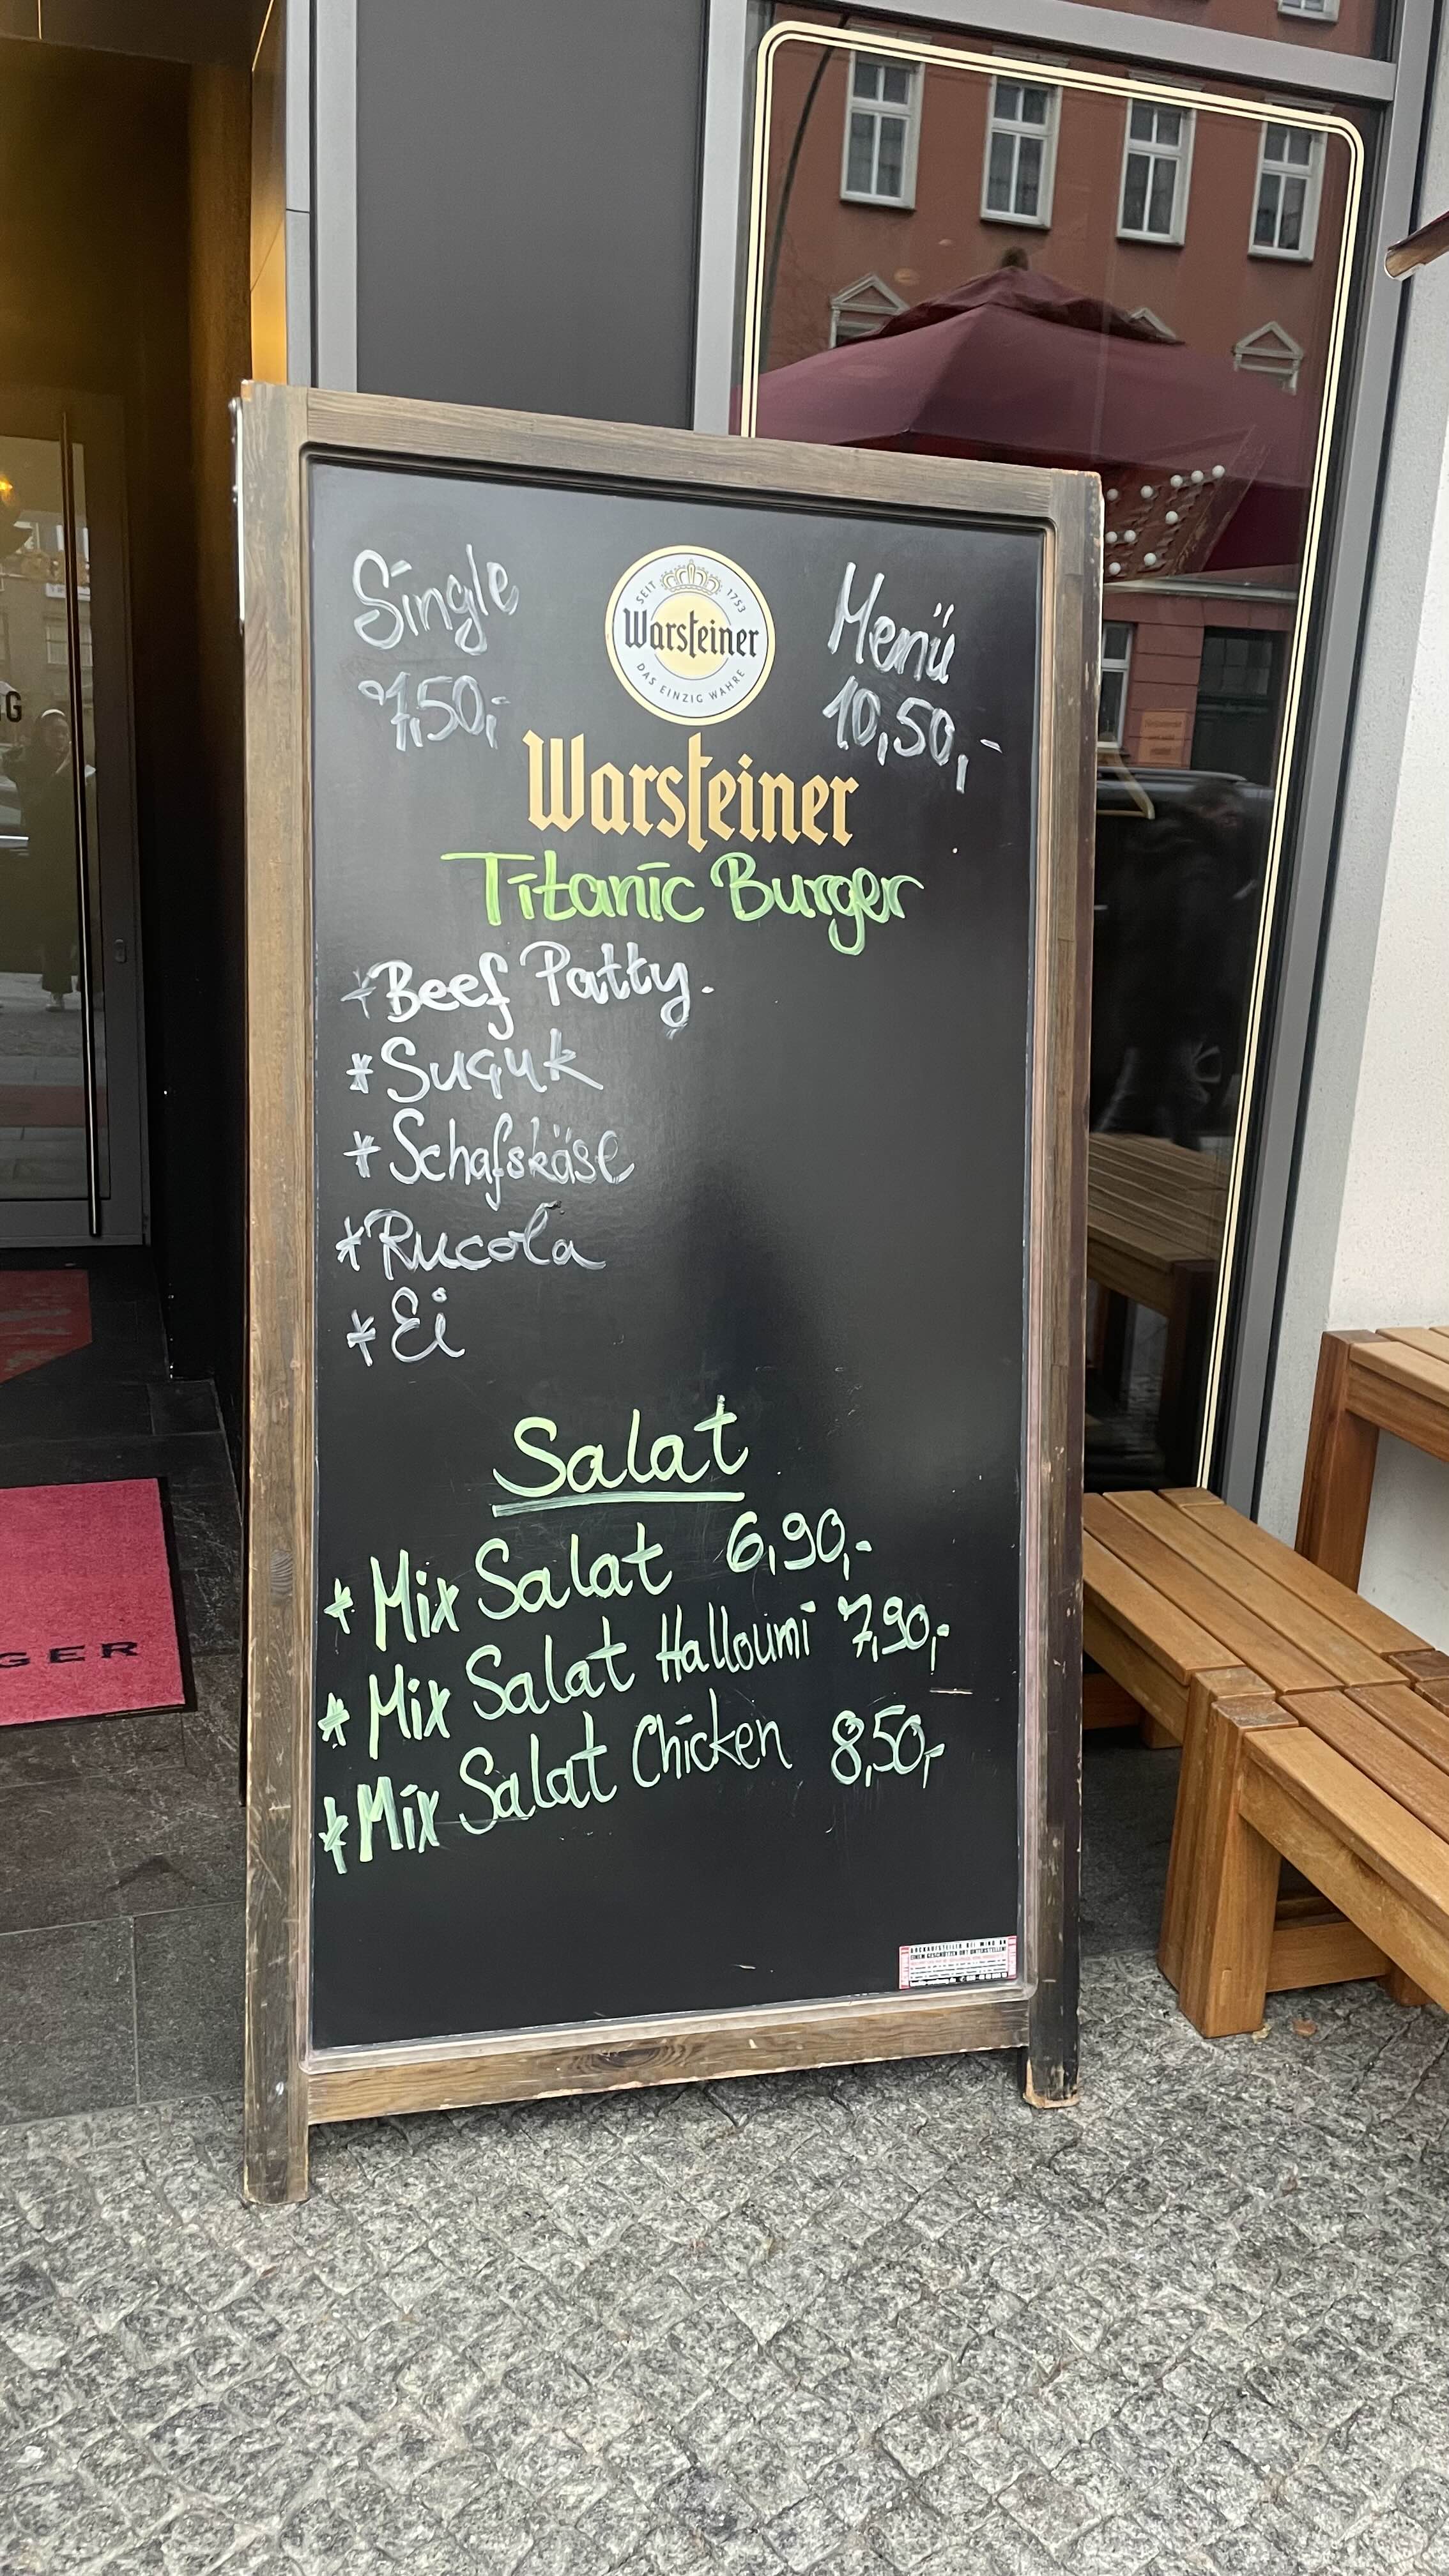 Single
7,50,-
SEIT 1753
Warsteiner
DAS EINZIG WAHRE
Menü
10,50,-
Warsteiner
Titanic Burger
*Beef Patty.
*Suquk
*Schafskäse
*Rucola
*Ei
Salat
*Mix Salat 6,90,-
*Mix Salat Halloumi 7,90,-
*Mix Salat Chicken 8,50,-
GER
G